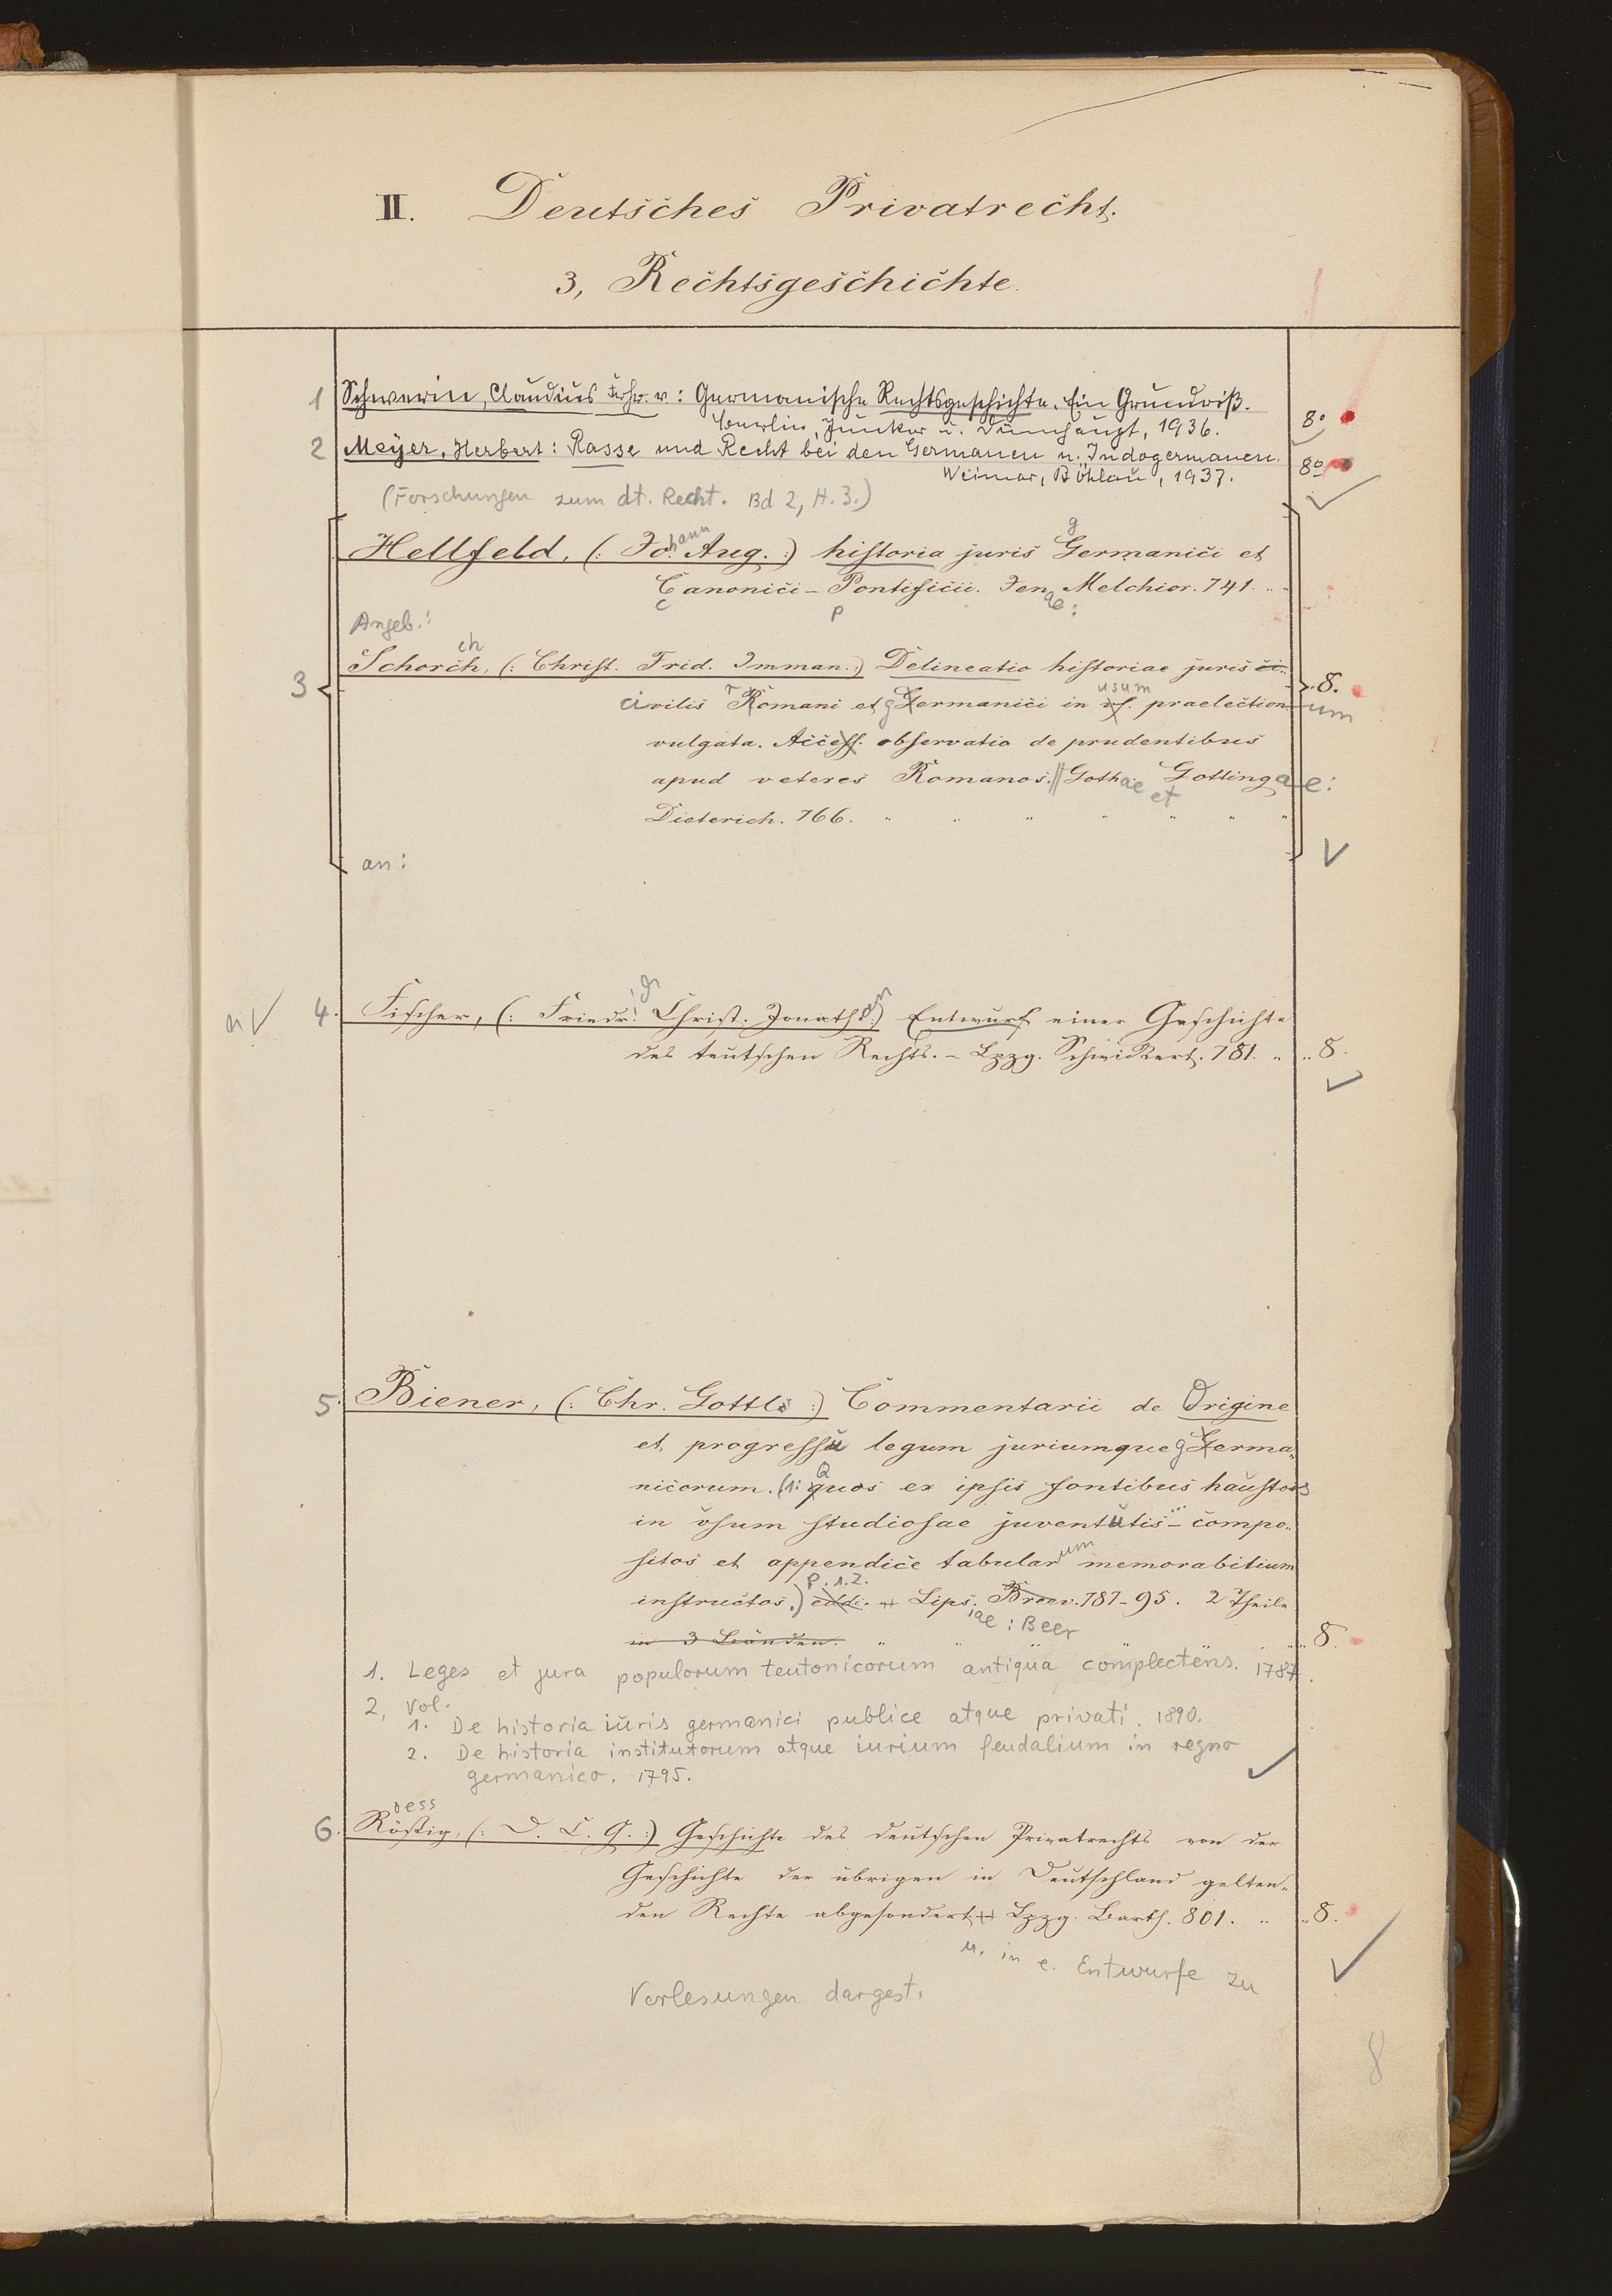 II. Deutsches Privatrecht.
3, Rechtsgeschichte.
1 Schwerin, Claudius Frhr. v.: Germanische Rechtsgeschichte. Ein Grundriß.
Berlin, Junker u. Dünnhaupt, 1936. 8°
2 Meyer, Herbert: Rasse und Recht bei den Germanen u. Indogermanen.
Weimar, Böhlau, 1937. 8°
(Forschungen zum dt. Recht. Bd 2, H. 3.)
Hellfeld, (: Johann Aug. :) historia juris Germanici et
g
Canonici - Pontificii. Jenae: Melchior. 741.
c p
Angeb.:
ch
3 Schorch, (: Christ. Frid. Imman. :) Delineatio historiae juris ci- 8.
civilis Romani et germanici in usum praelectionum
vulgata. Access. observatio de prudentibus
apud veteres Romanos. || Gothae et Gottingae:
Dieterich. 766.
an:
4. Fischer, (: Friedr. Christ. Jonathan :) Entwurf einer Geschichte
des teutschen Rechts. - Lpzg. Schwickert. 781. 8.
5. Biener, (: Chr. Gottl. :) Commentarii de Origine
et progressu legum juriumque germa-
nicorum. (1: Quos ex ipsis fontibus haustos
in usum studiosae juventutis - compo-
sitos et appendice tabularum memorabilium
instructos.) P. 1.2. Lips. 787-95. 2 Theile
iae: Beer
in 3 Bänden. 8.
1. Leges et jura populorum teutonicorum antiqua complectens. 1787.
2, Vol.
1. De historia iuris germanici publice atque privati. 1890.
2. De historia institutorum atque iurium feudalium in regno
germanico. 1795.
oess
6. Rößig, (: D. C. G. :) Geschichte des deutschen Privatrechts von der
Geschichte der übrigen in Deutschland gelten-
den Rechte abgesondert Lpzg. Barth. 801. 8.
u. in e. Entwurfe zu
Vorlesungen dargest.
8